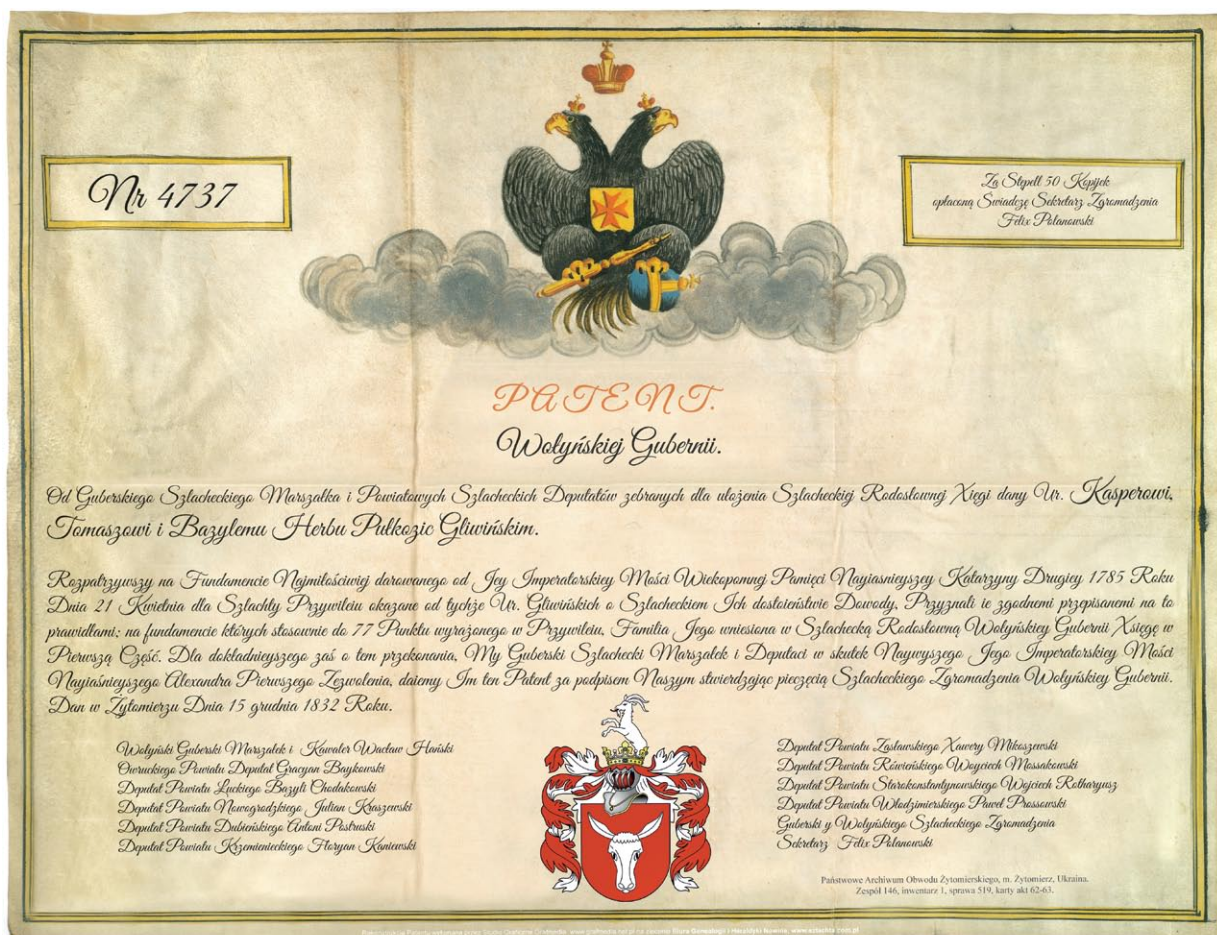 Nr 4737
Za Stępell 50 Kopijek
opłaconą Świadczę Sekretarz Zgromadzenia
Felix Polanowski
PATENT.
Wołyńskiej Gubernii.
Od Guberskiego Szlacheckiego Marszałka i Powiatowych Szlacheckich Deputatów zebranych dla ułożenia Szlacheckiej Rodosłowney Xięgi dany Ur. Kasperowi,
Tomaszowi i Bazylemu Herbu Pułkozic Gliwińskim.
Rozpatrzywszy na Fundamencie Najmiłościwiej darowanego od Jey Imperatorskiey Mości Wiekopomnej Pamięci Nayiasnieyszey Katarzyny Drugiey 1785 Roku
Dnia 21 Kwietnia dla Szlachty Przywileiu okazane od tychże Ur. Gliwińskich o Szlacheckiem Ich dostoieństwie Dowody, Przyznali ie zgodnemi przepisanemi na to
prawidłami; na fundamencie których stosownie do 77 Punktu wyrażonego w Przywileiu, Familia Jego wniesiona w Szlachecką Rodosłowną Wołyńskiey Gubernii Xsięgę w
Pierwszą Część. Dla dokładnieyszego zaś o tem przekonania, My Guberski Szlachecki Marszałek i Deputaci w skutek Naywyszego Jego Imperatorskiey Mości
Nayiaśnieyszego Alexandra Pierwszego Zezwolenia, daiemy Im ten Patent za podpisem Naszym stwierdzając pieczęcią Szlacheckiego Zgromadzenia Wołyńskiey Gubernii.
Dan w Żytomierzu Dnia 15 grudnia 1832 Roku.
Wołyński Guberski Marszałek i Kawaler Wacław Hański
Owruckiego Powiatu Deputat Gracyan Baykowski
Deputat Powiatu Łuckiego Bazyli Chodakowski
Deputat Powiatu Nowogrodzkiego Julian Kraszewski
Deputat Powiatu Dubieńskiego Antoni Postruski
Deputat Powiatu Krzemienieckiego Floryan Kaniewski
Deputat Powiatu Zasławskiego Xawery Mikoszewski
Deputat Powiatu Rówieńskiego Woyciech Mossakowski
Deputat Powiatu Starokonstantynowskiego Wojciech Rotharyusz
Deputat Powiatu Włodzimierskiego Paweł Prossowski
Guberski y Wołyńskiego Szlacheckiego Zgromadzenia
Sekretarz Felix Polanowski
Państwowe Archiwum Obwodu Żytomierskiego, m. Żytomierz, Ukraina.
Zespół 146, inwentarz 1, sprawa 519, karty akt 62-63.